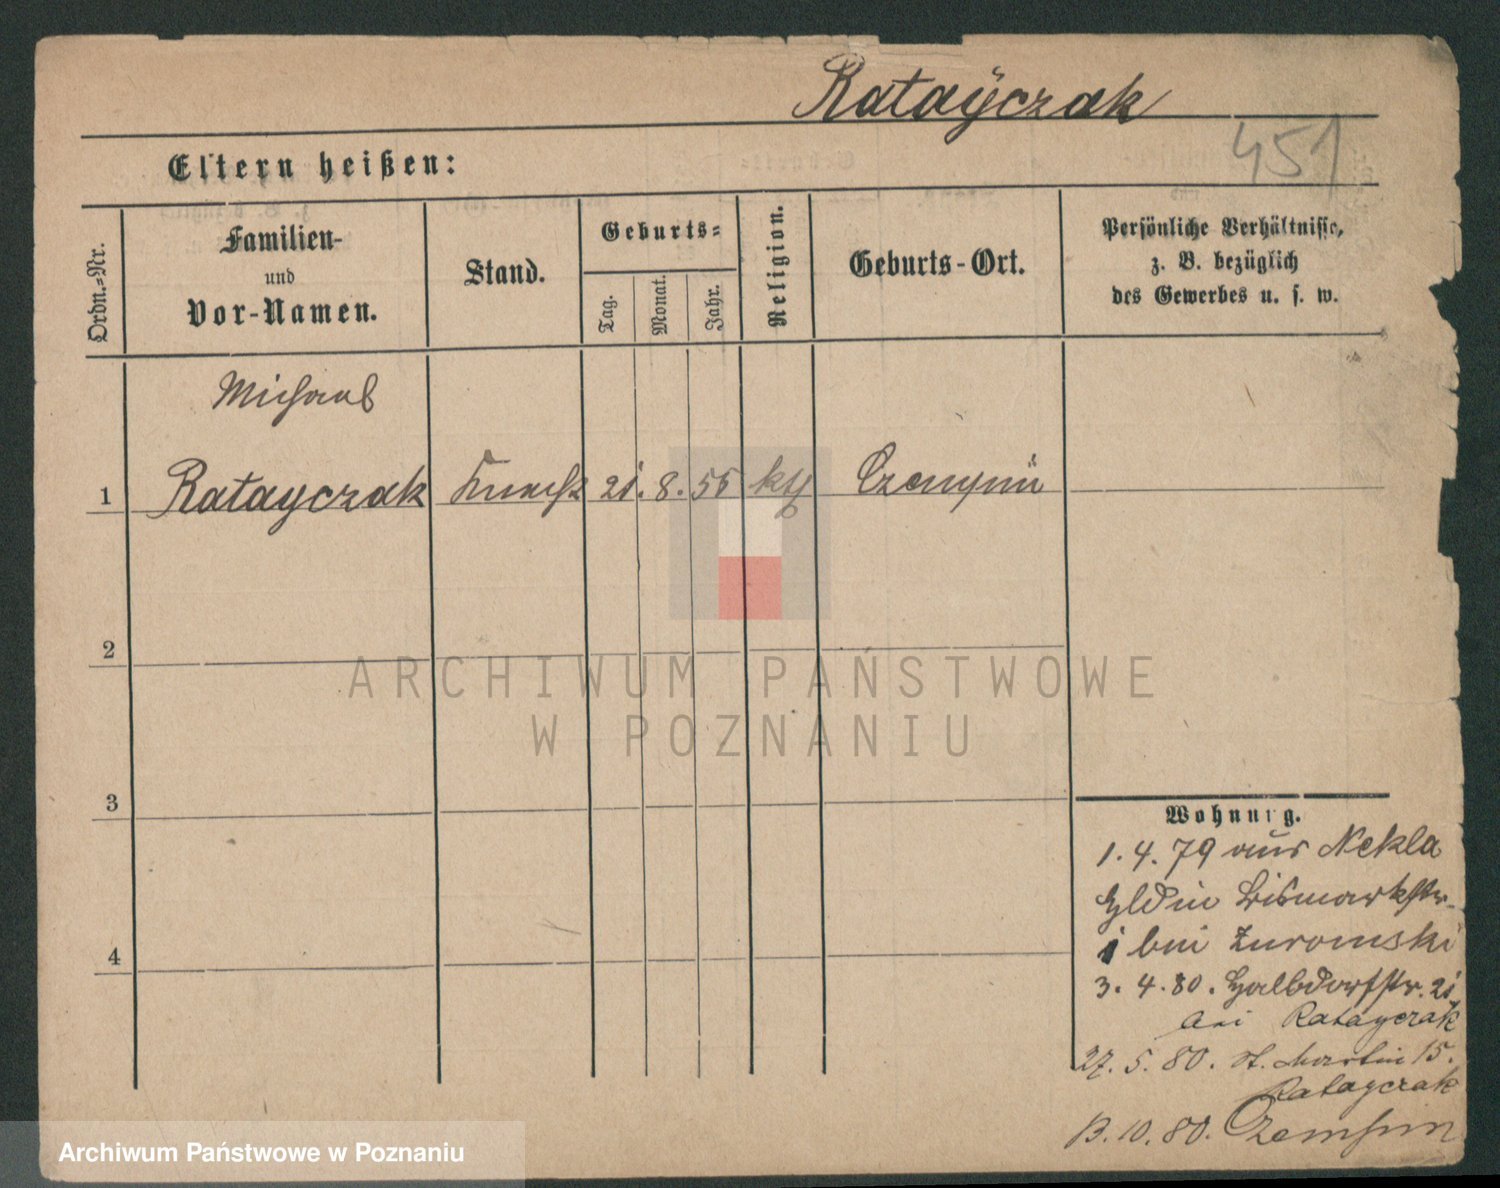 Rataÿczak
451
Eltern heißen:
Ordn.-Nr.
Familien-
und
Vor-Namen.
Stand.
Geburts-
Tag.
Monat.
Jahr.
Religion.
Geburts-Ort.
Persönliche Verhältnisse,
z. B. bezüglich
des Gewerbes u. s. w.
Michael
1 Ratayczak Knecht 21. 8. 55 kth
2
3
4
Wohnung.
1. 4. 79 aus Nekla
Bismarkstr.
1 bei Zuromski
3. 4. 80. Halbdorfstr. 21
bei Ratayczak
27. 5. 80. St. Martin 15.
Ratayczak
13. 10. 80. Czempin
ARCHIWUM PAŃSTWOWE
W POZNANIU
Archiwum Państwowe w Poznaniu